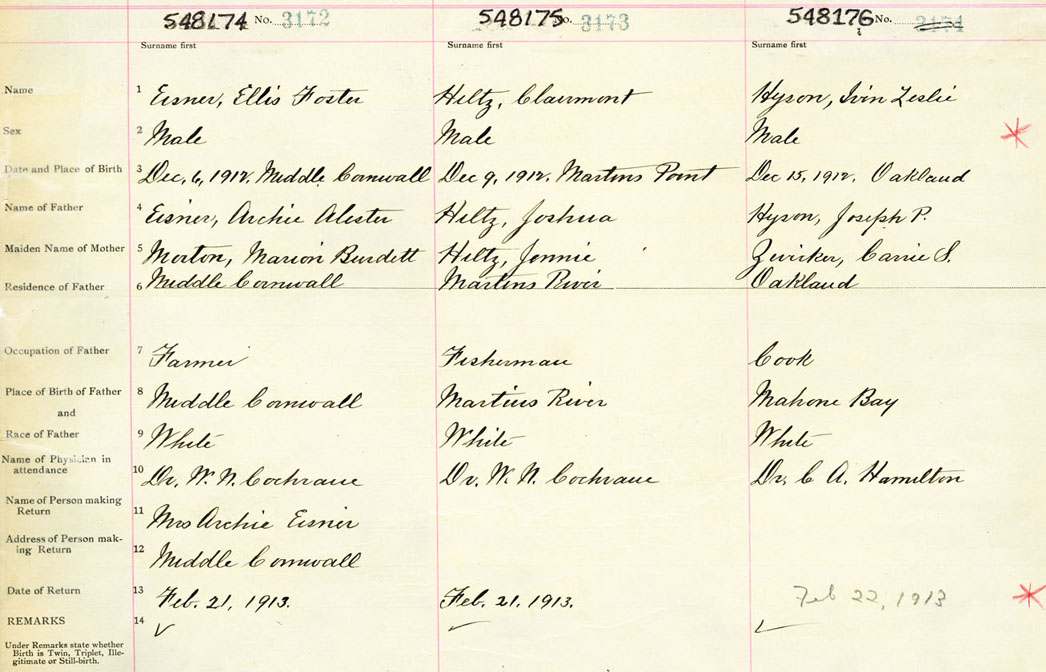 548174 No. 3172 548175 No. 3173 548176 No. 3174
Surname first Surname first Surname first
Name 1 Eisner, Ellis Foster Hiltz, Clairmont Hyson, Ivin Leslie
Sex 2 Male Male Male
Date and Place of Birth 3 Dec. 6, 1912. Middle Cornwall Dec 9, 1912. Martins Point Dec 15, 1912. Oakland
Name of Father 4 Eisner, Archie Alister Hiltz, Joshua Hyson, Joseph P.
Maiden Name of Mother 5 Morton, Marion Burdett Hiltz, Jennie Zwicker, Carrie S.
Residence of Father 6 Middle Cornwall Martins River Oakland
Occupation of Father 7 Farmer Fisherman Cook
Place of Birth of Father 8 Middle Cornwall Martins River Mahone Bay
and
Race of Father 9 White White White
Name of Physician in
attendance 10 Dr. W. N. Cochrane Dr. W. N. Cochrane Dr. C A. Hamilton
Name of Person making
Return 11 Mrs Archie Eisner
Address of Person mak-
ing Return 12 Middle Cornwall
Date of Return 13 Feb. 21, 1913. Feb. 21, 1913. Feb 22, 1913
REMARKS 14
Under Remarks state whether
Birth is Twin, Triplet, Ille-
gitimate or Still-birth.